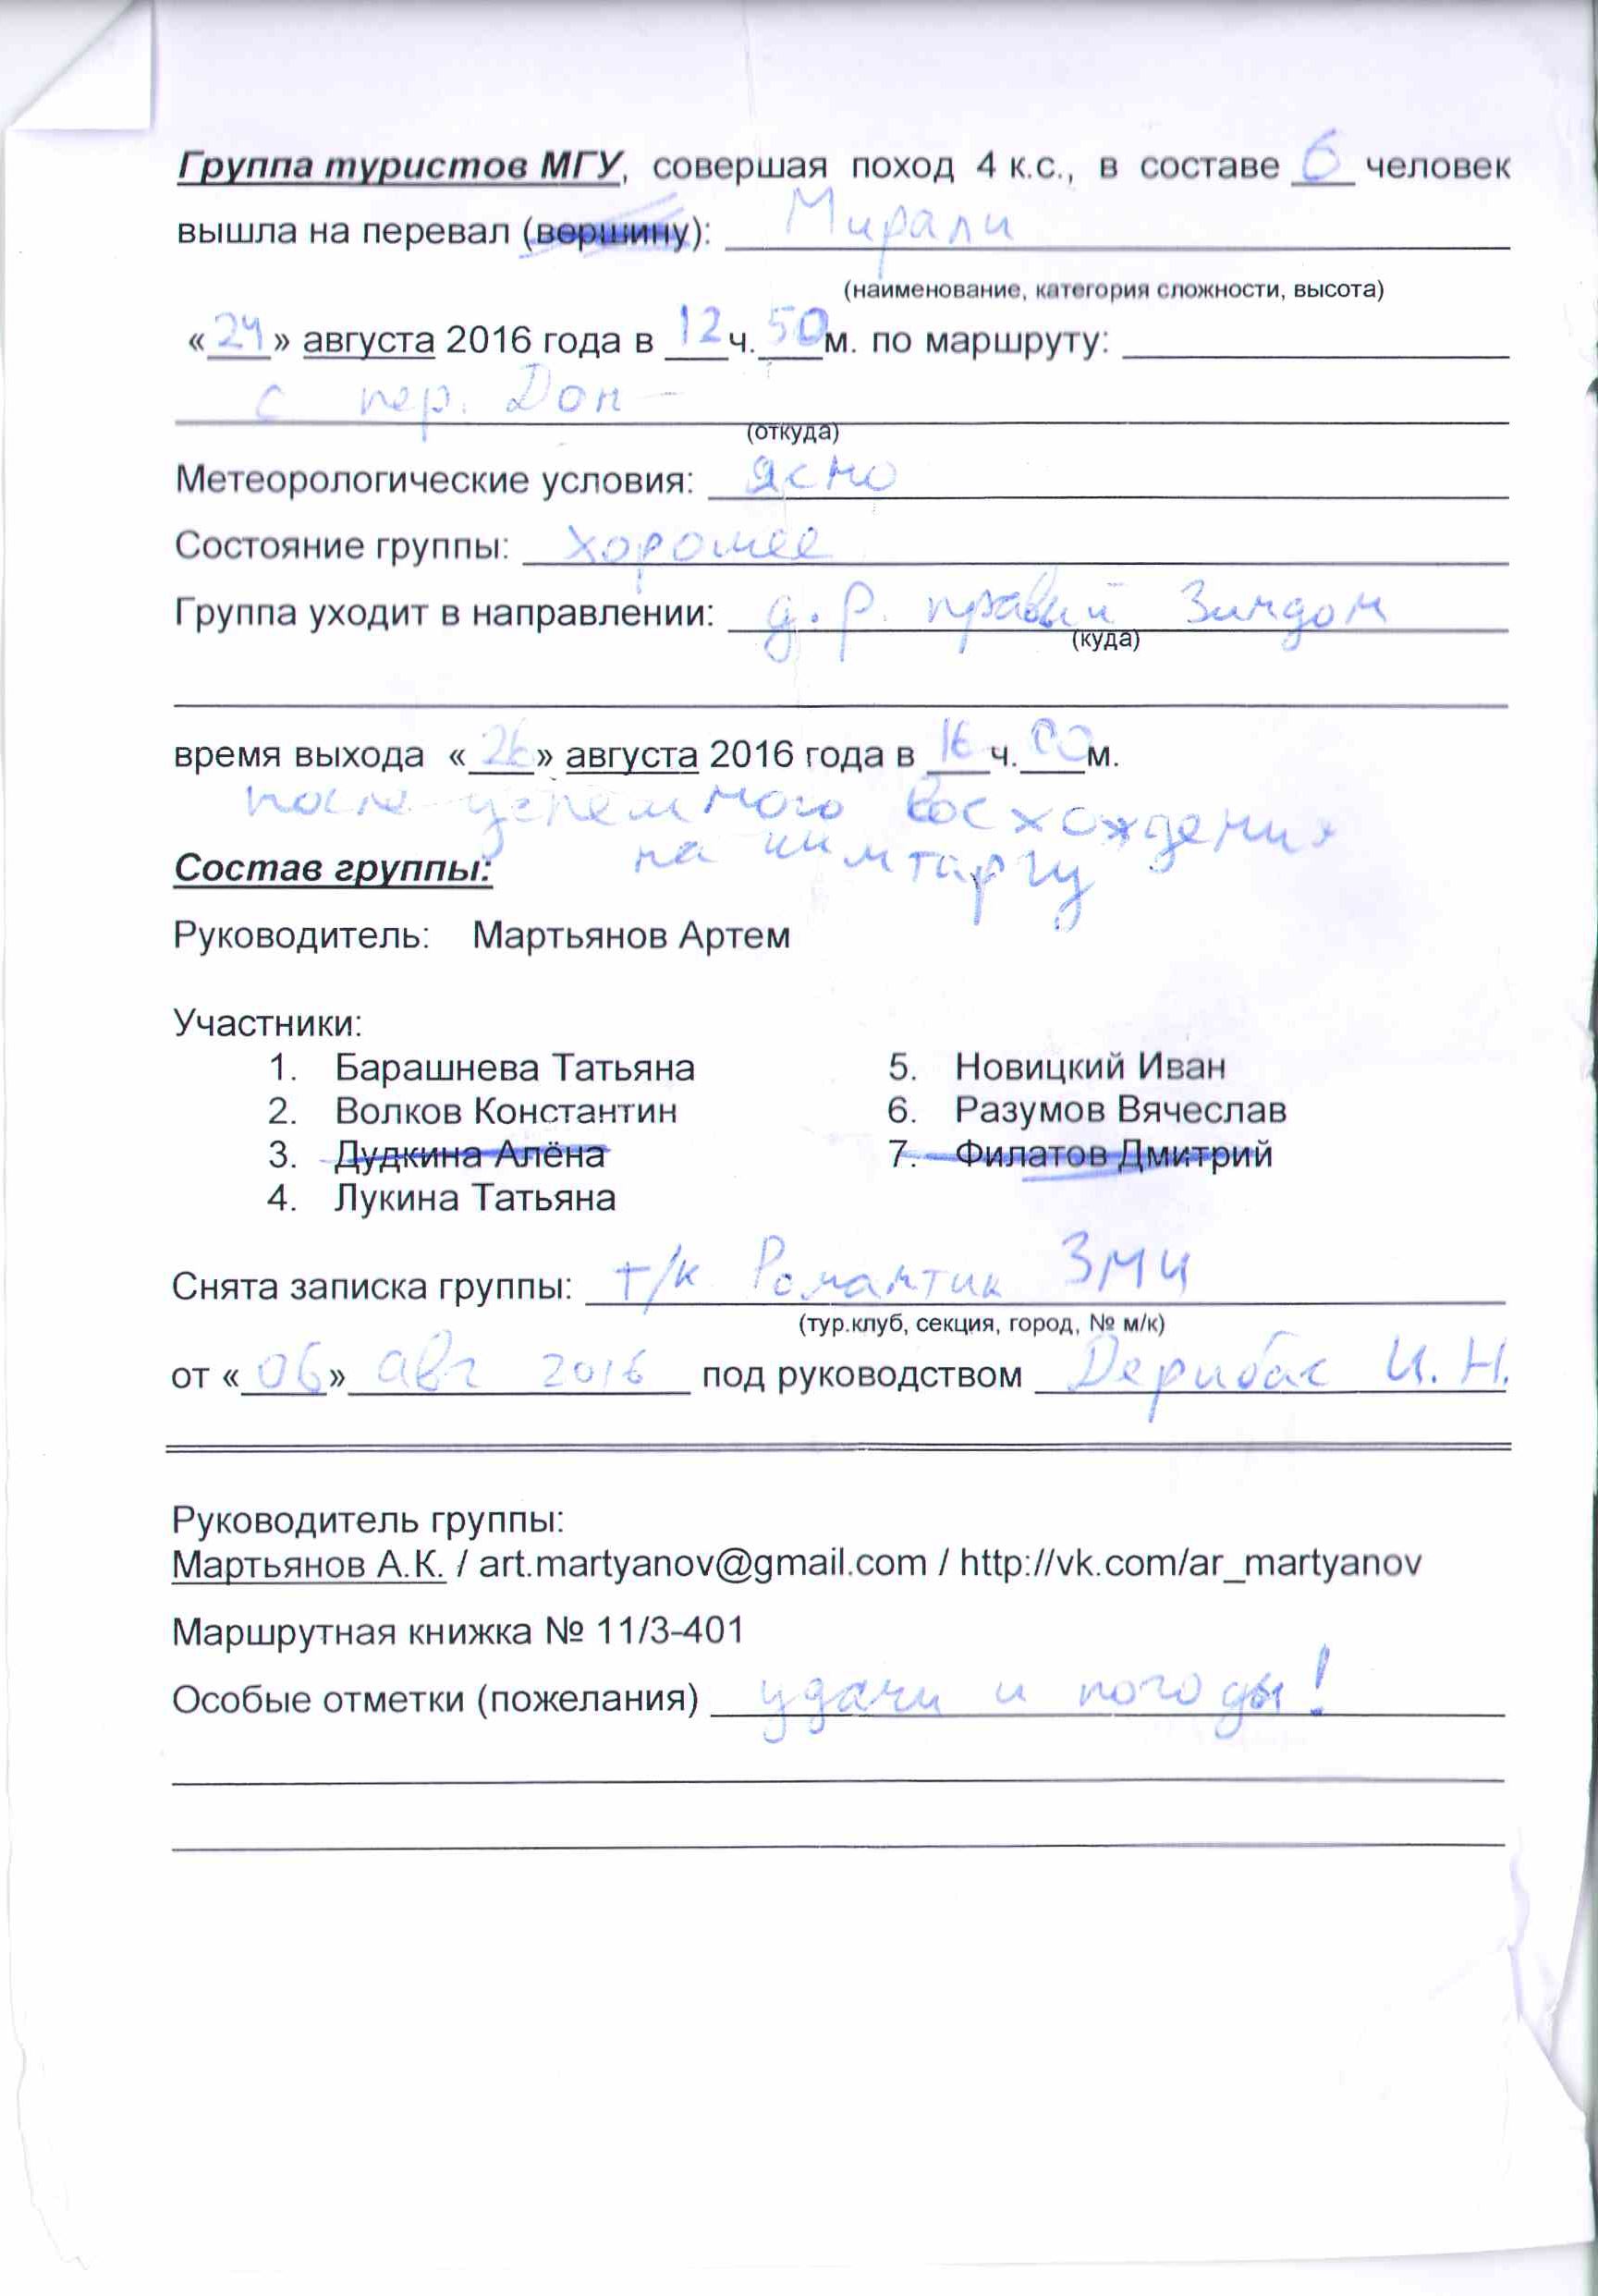 Группа туристов МГУ, совершая поход 4 к.с., в составе 6 человек
вышла на перевал (вершину): Мирали
(наименование, категория сложности, высота)
«24» августа 2016 года в 12 ч. 50 м. по маршруту:
с пер. Дон
(откуда)
Метеорологические условия: ясно
Состояние группы: хорошее
Группа уходит в направлении: д.р. правый Зиндон
(куда)
время выхода «26» августа 2016 года в 16 ч. 00 м.
после успешного восхождения
на чимтаргу
Состав группы:
Руководитель: Мартьянов Артем
Участники:
1. Барашнева Татьяна 5. Новицкий Иван
2. Волков Константин 6. Разумов Вячеслав
3. Дудкина Алёна 7. Филатов Дмитрий
4. Лукина Татьяна
Снята записка группы: т/к Романтик ЗМЦ
(тур.клуб, секция, город, № м/к)
от «06» авг 2016 под руководством Дерибас И.Н.
Руководитель группы:
Мартьянов А.К. / art.martyanov@gmail.com / http://vk.com/ar_martyanov
Маршрутная книжка № 11/3-401
Особые отметки (пожелания) удачи и погоды!